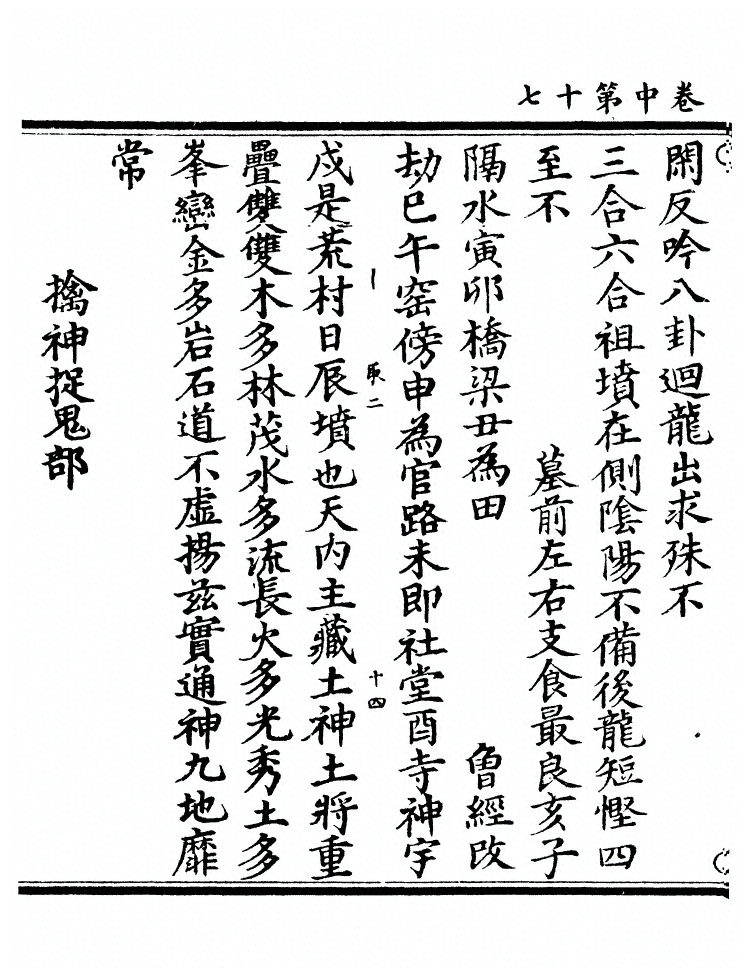 卷中第十七
閑反吟八卦迴龍出求殊不
三合六合祖墳在側陰陽不備後龍短慳四
至不 墓前左右支食最良亥子
隔水寅卯橋梁丑為田 魯經改
劫巳午窑傍申為官路未即社堂酉寺神宇
一 取二 十四
戌是荒村日辰墳也天内主藏土神土將重
疊雙雙木多林茂水多流長火多光秀土多
峯巒金多岩石道不虛揚茲實通神九地靡
常
擒神捉鬼部